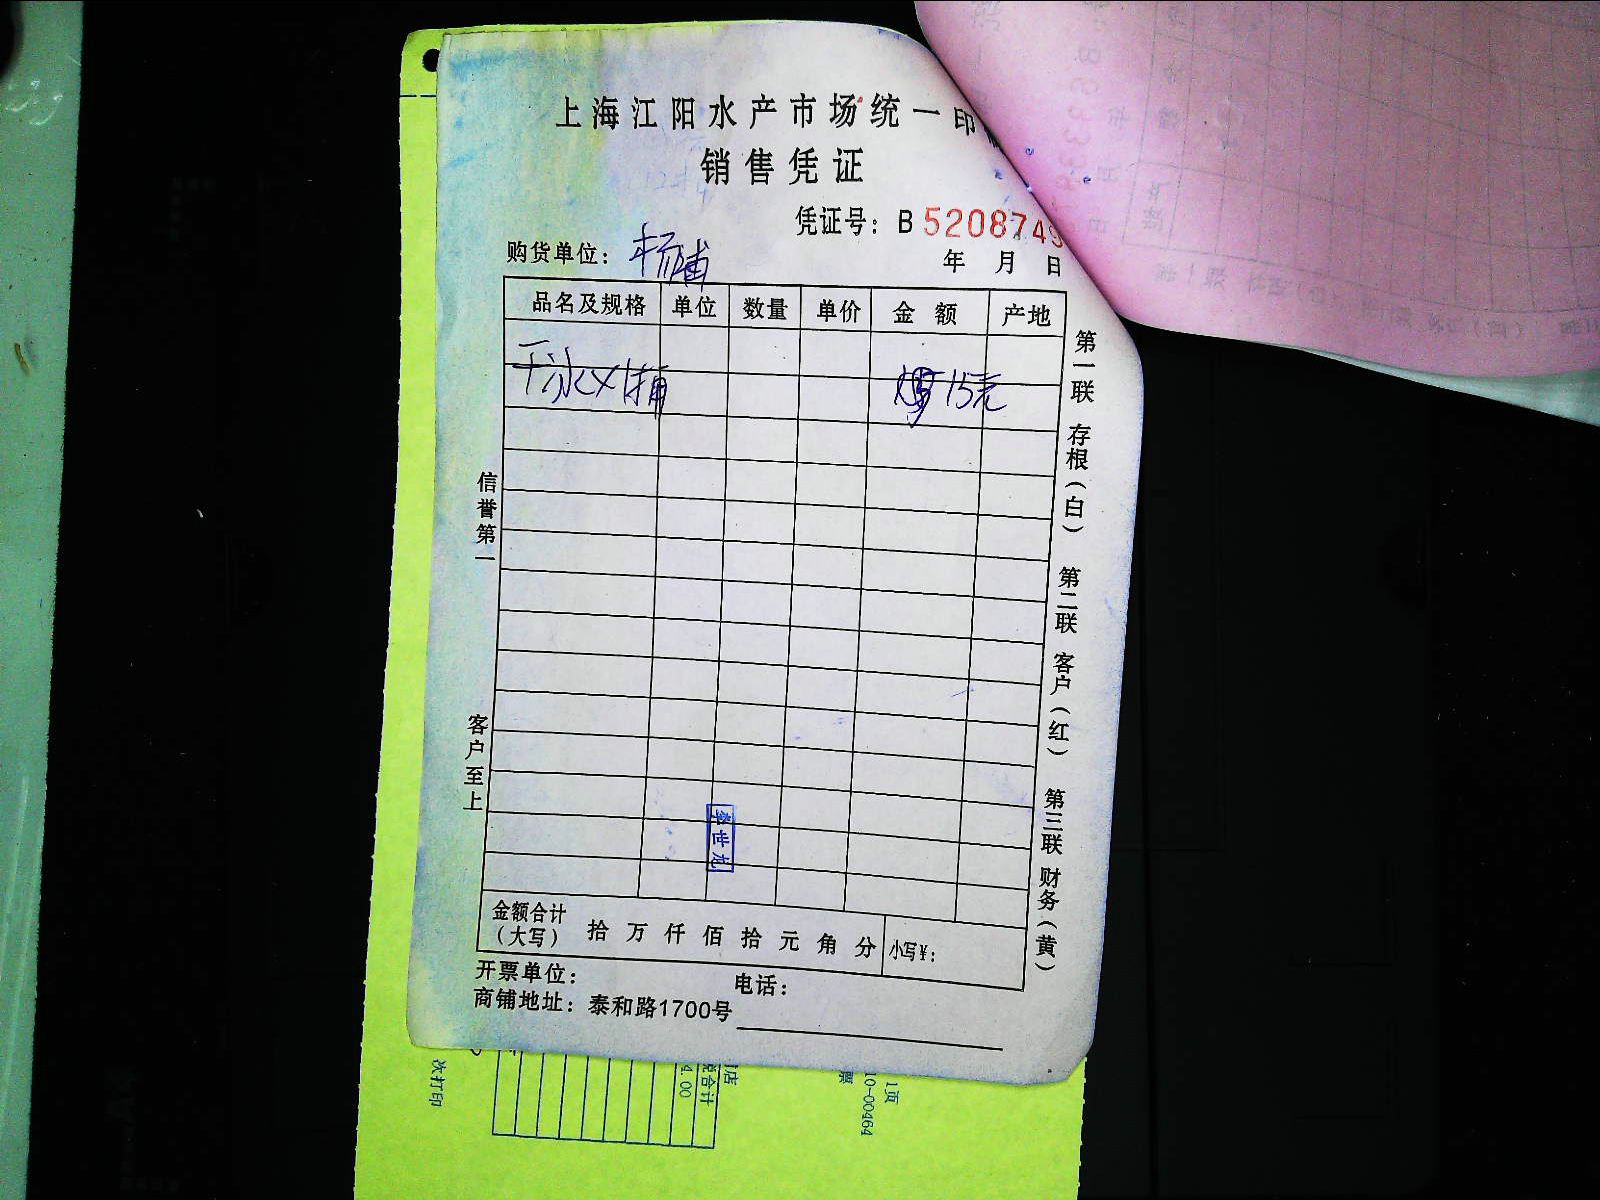 上海江阳水产市场统一印
销售凭证
凭证号：B 5208749
购货单位：杨浦 年 月 日
品名及规格 单位 数量 单价 金额 产地
干冰×1箱 15元
信誉第一
客户至上
第一联 存根（白） 第二联 客户（红） 第三联 财务（黄）
金额合计（大写） 拾 万 仟 佰 拾 元 角 分 小写¥：
开票单位： 电话：
商铺地址：泰和路1700号
次打印
4.00
税合计
店
票
10-00464
1页